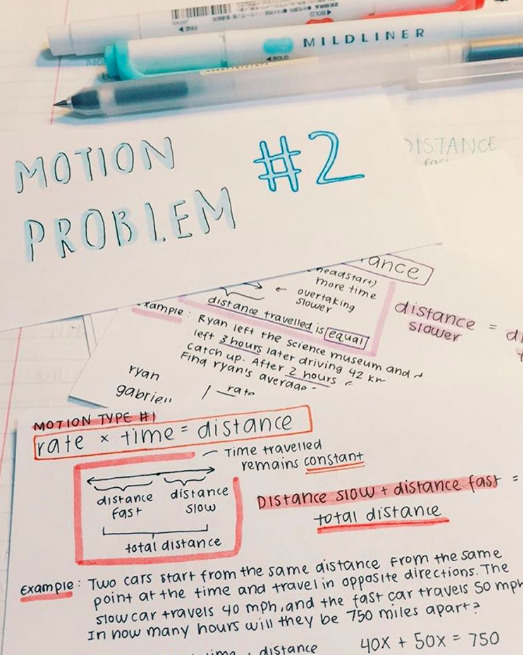 ZEBRA
FINE
BOLD
MILDLINER
BOLD
MOTION
PROBLEM
#2
DISTANCE
headstart)
more time
overtaking
slower
distance travelled is equal
Example: Ryan left the science museum and
left 3 hours later driving 42
catch up. After 2 hours
Find ryan's average
ryan
rate
distance =
slower
MOTION TYPE #1
rate × time = distance
Time travelled
remains constant
distance distance
fast slow
total distance
Distance slow + distance fast =
total distance
Example: Two cars start from the same distance from the same
point at the time and travel in opposite directions. The
slow car travels 40 mph, and the fast car travels 50 mph
In how many hours will they be 750 miles apart?
distance
40x + 50x = 750